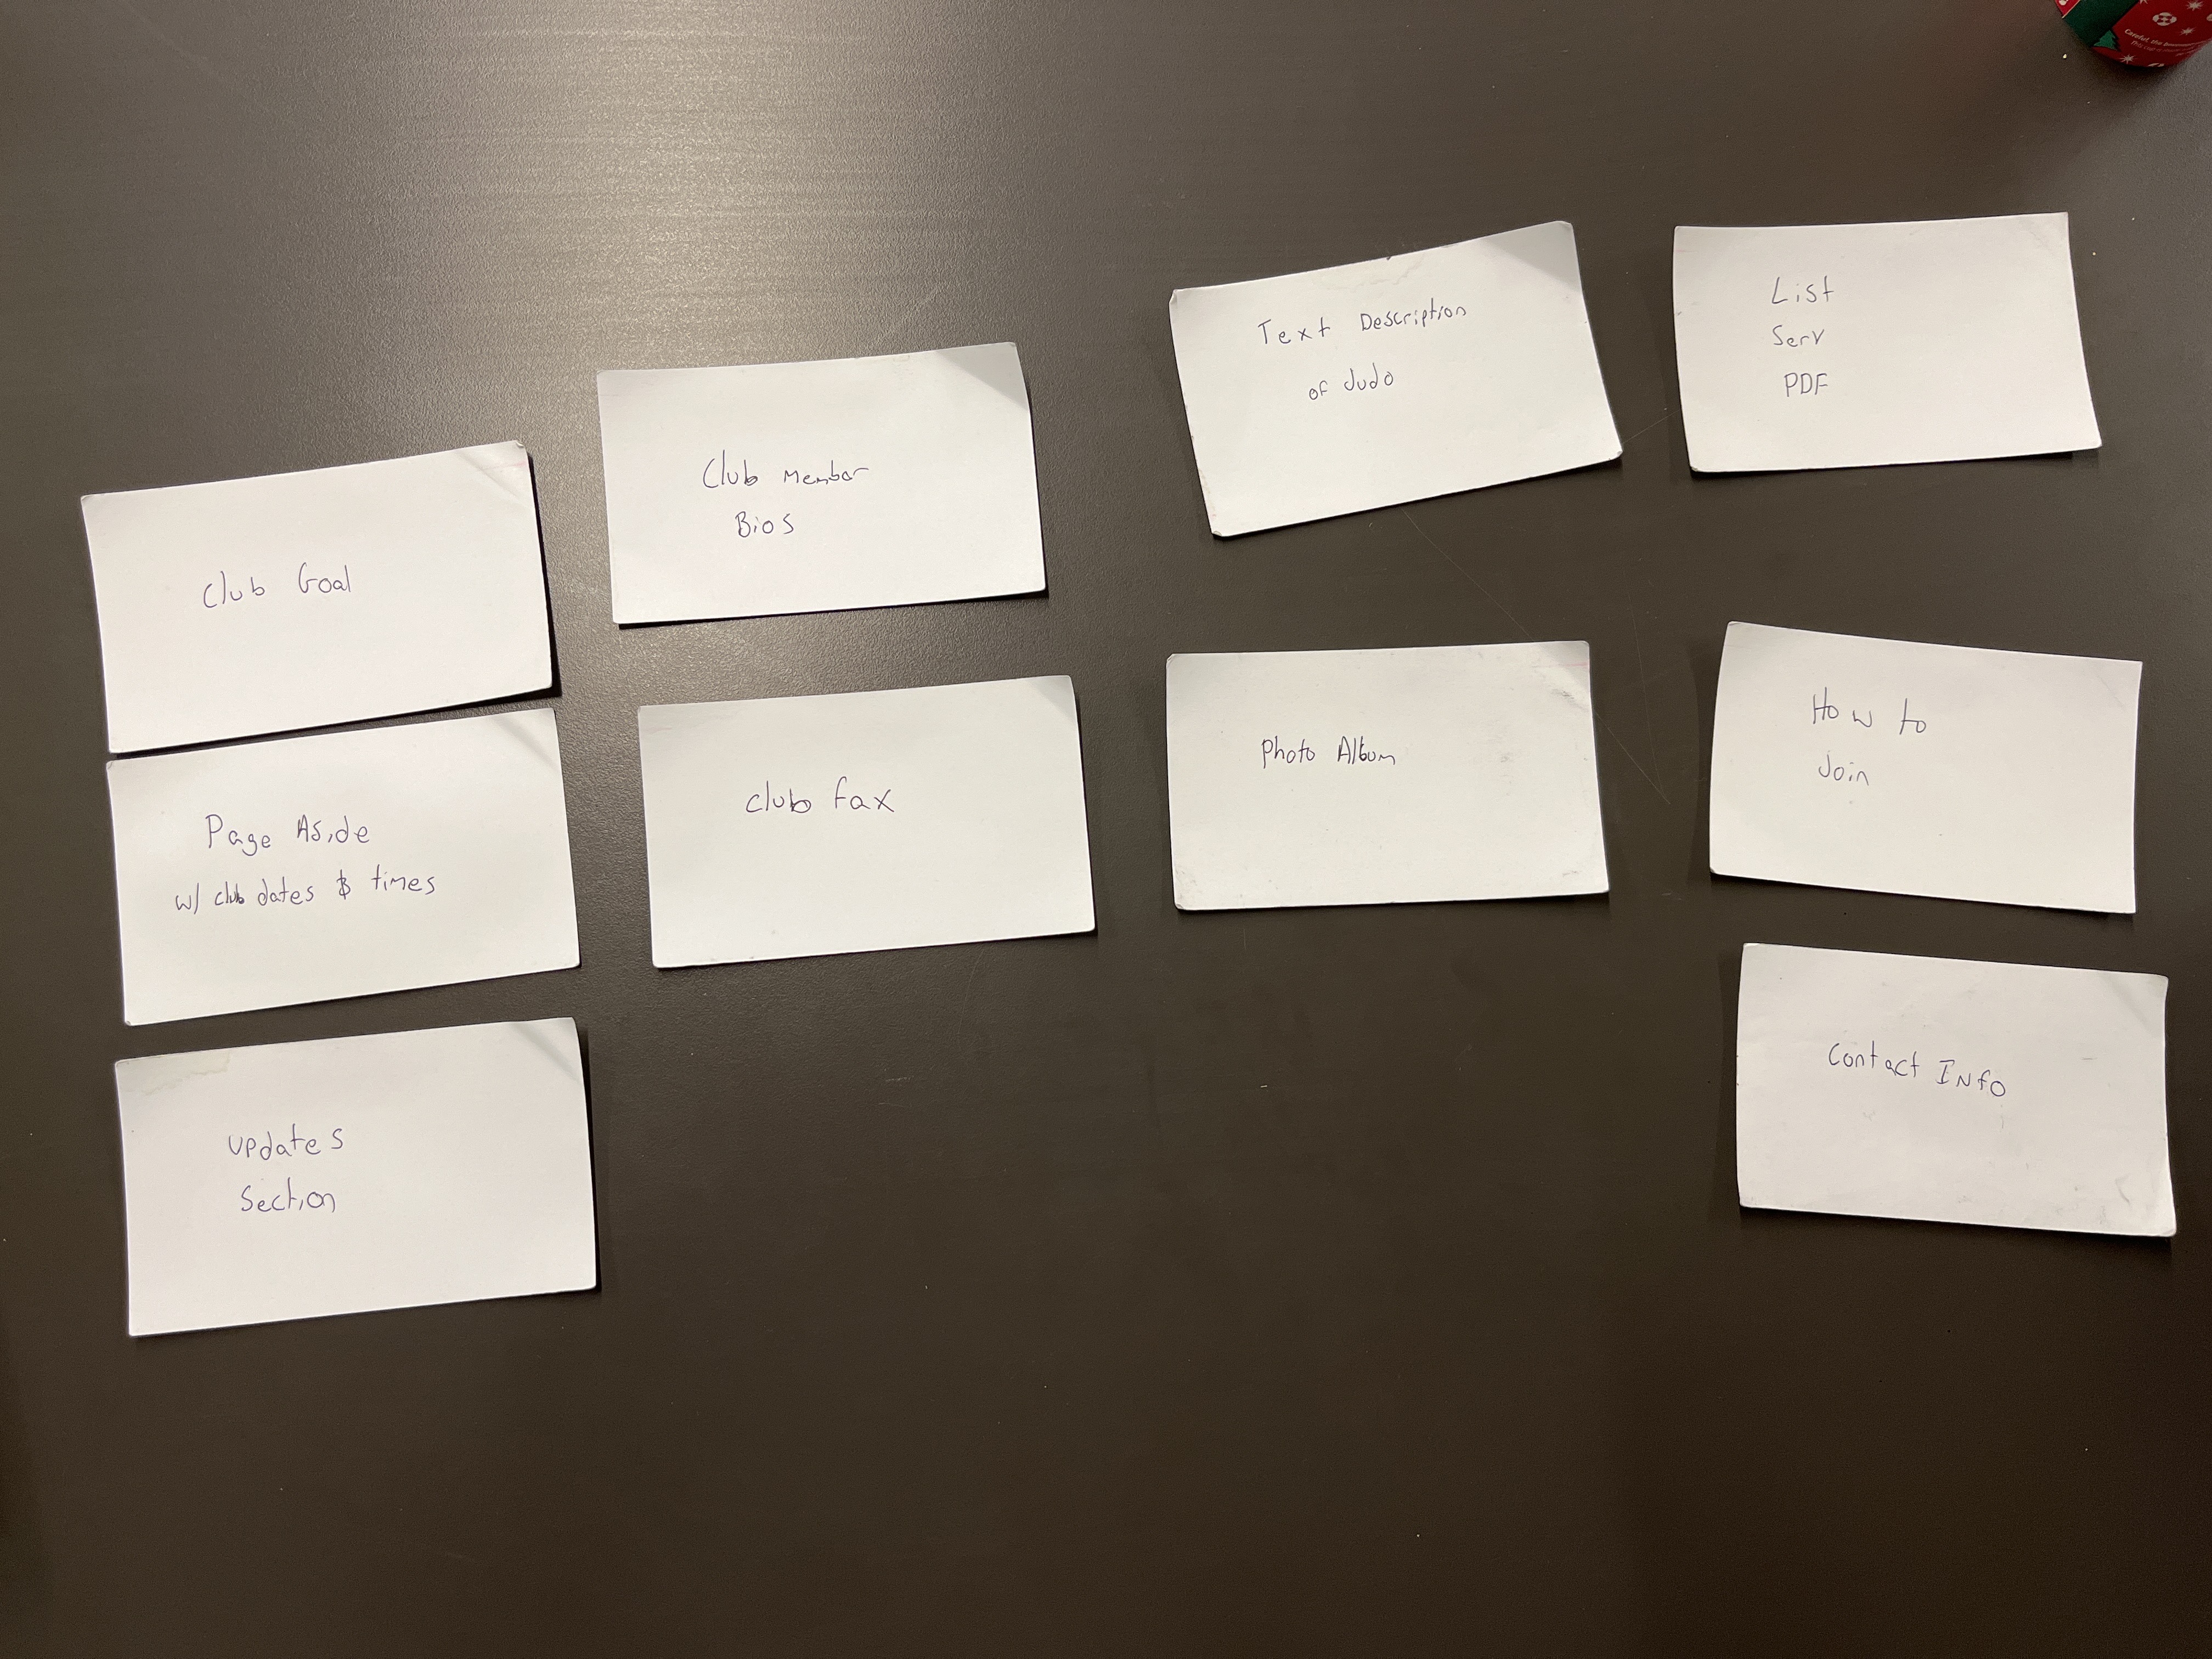 Club Goal
Page Aside
w/ club dates & times
updates
Section
Club Member
Bios
club fax
Text Description
of Judo
Photo Album
List
Serv
PDF
How to
Join
Contact Info
Careful, the